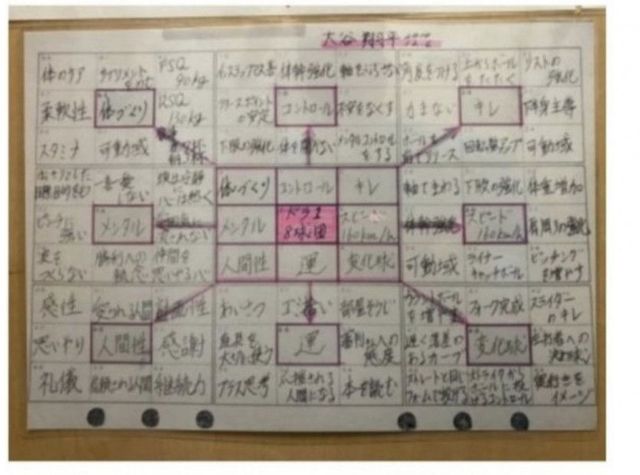 大谷翔平
体のケア サプリメントをのむ FSQ 90kg インステップ改善 体幹強化 軸をぶらさない 角度をつける 上からボールをたたく リストの強化
柔軟性 体づくり RSQ 130kg リリースポイントの安定 コントロール 不安をなくす 力まない キレ 下半身主導
スタミナ 可動域 下肢の強化 体を開かない メンタルコントロールをする ボールを前でリリース 回転数アップ 可動域
はっきりとした目標、目的をもつ 一喜一憂しない 頭は冷静に心は熱く 体づくり コントロール キレ 軸でまわる 下肢の強化 体重増加
ピンチに強い メンタル 雰囲気に流されない メンタル ドラ1 8球団 スピード160km/h 体幹強化 スピード160km/h 肩周りの強化
波をつくらない 勝利への執念 仲間を思いやる心 人間性 運 変化球 可動域 ライナーキャッチボール ピッチングを増やす
感性 愛される人間 計画性 あいさつ ゴミ拾い 部屋そうじ カウントボールを増やす フォーク完成 スライダーのキレ
思いやり 人間性 感謝 道具を大切に使う 運 審判さんへの態度 遅く落差のあるカーブ 変化球 左打者への決め球
礼儀 信頼される人間 継続力 プラス思考 応援される人間になる 本を読む ストレートと同じフォームで投げる ストライクからボールに投げるコントロール 奥行きをイメージ